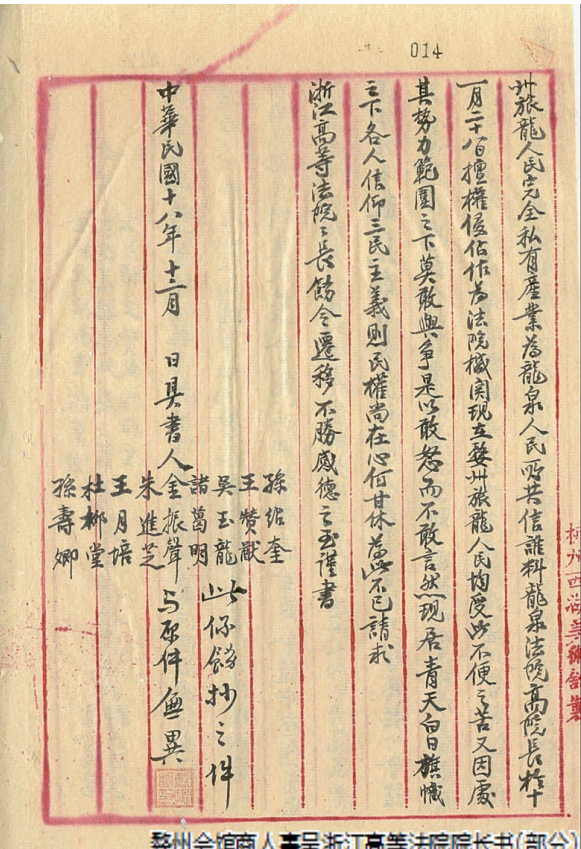 014
州旅龍人民完全私有產業為龍泉人民所共信誰料龍泉法院高院長於十
一月二十八日擅權侵佔作為法院機関現在婺州旅龍人民均受此不便之苦又因處
其勢力範圍之下莫敢與爭是以敢怒而不敢言然現居青天白日旗幟
之下各人信仰三民主義則民權尚在心何甘休為此不已請求
浙江高等法院院長飭令遷移不勝感德之至謹書
中華民國十八年十二月 日具書人金振聲
孫紹奎
王贊猷
吳玉龍
諸葛明
朱進芝
王月培
杜柳堂
孫壽卿
此係飭抄之件
与原件無異
杭州西湖美術館製
婺州会馆商人事呈浙江高等法院院长书(部分)